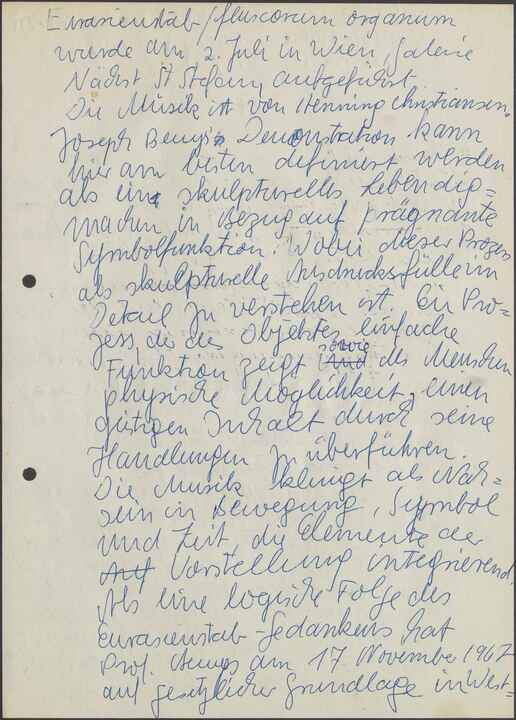 Eurasienstab / fluxorum organum
wurde am 2. Juli in Wien, Galerie
Nächst St Stefan, aufgeführt.
Die Musik ist von Henning Christiansen.
Joseph Beuys Demonstration kann
hier am besten definiert werden
als ein skulpturelles Lebendig=
machen in Bezug auf prägnante
Symbolfunktion. Wobei dieser Prozess
als skulpturelle Ausdrucksfülle im
Detail zu verstehen ist. Ein Pro=
zess, der des Objektes einfache
Funktion zeigt sowie des Menschen
physische Möglichkeit, einen
gütigen Inhalt durch seine
Handlungen zu überführen.
Die Musik klingt als
sein in Bewegung, Symbol
und Zeit, die Elemente der
Vorstellung integrierend.
Als eine logische Folge des
Eurasienstab-Gedankens hat
Prof. Beuys am 17. November 1967
auf gesetzlicher Grundlage in West-